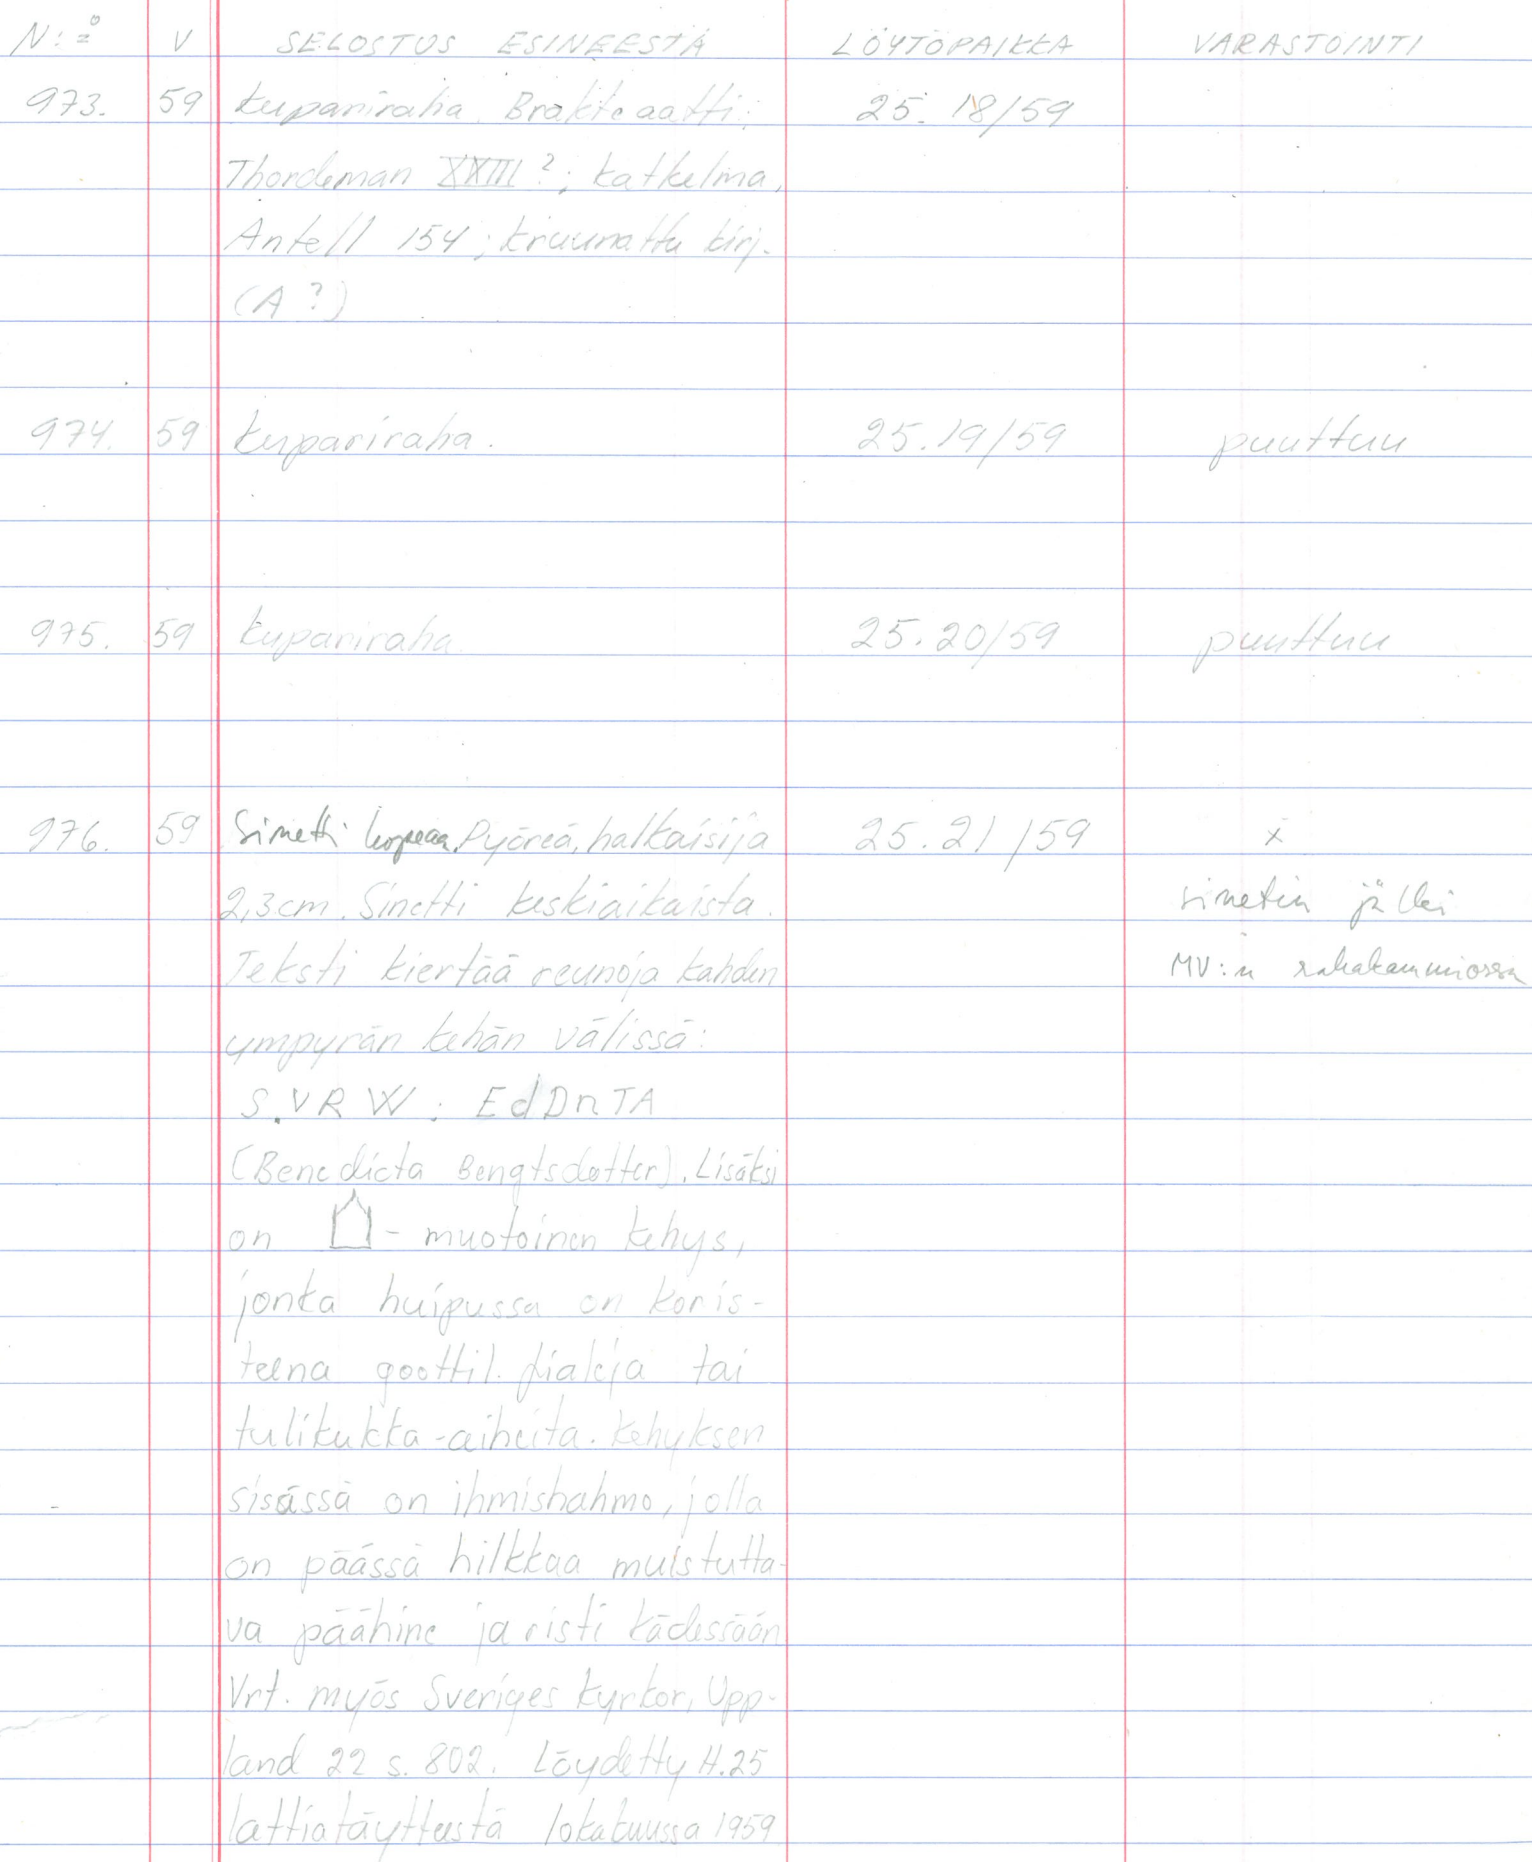 N:o V SELOSTUS ESINEESTÄ LÖYTÖPAIKKA VARASTOINTI
973. 59 kupariraha. Brakteaatti; 25. 18/59
Thordeman XXIII?; katkelma,
Antell 154; kruunattu kirj.
(A?)
974. 59 kupariraha. 25.19/59 puuttuu
975. 59 kupariraha. 25.20/59 puuttuu
976. 59 Sinetti hopeaa. Pyöreä, halkaisija 25.21/59 x
2,3cm. Sinetti keskiaikaista. sinetin jälki
Teksti kiertää reunoja kahden MV:n rahakammiossa
ympyrän kehän välissä:
S.VRW: EdDnTA
(Benedicta Bengtsdotter). Lisäksi
on - muotoinen kehys,
jonka huipussa on koris-
teena goottil. fialeja tai
tulikukka-aiheita. Kehyksen
sisässä on ihmishahmo, jolla
on päässä hilkkaa muistutta-
va päähine ja risti kädessään
Vrt. myös Sveriges kyrkor, Upp-
land 22 s. 802. Löydetty H.25
lattiatäytteestä lokakuussa 1959